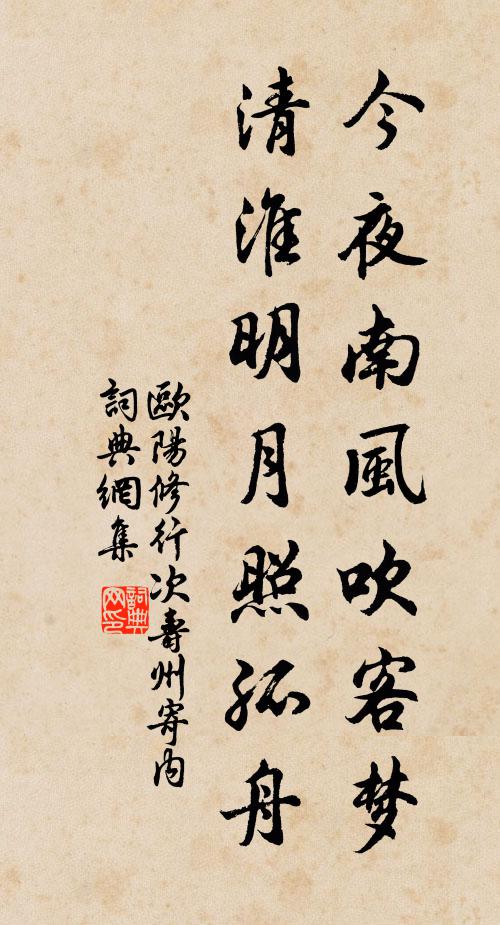 今夜南風吹客梦
清淮明月照孤舟
歐陽修行次壽州寄内
詞典網集
詞典
网印